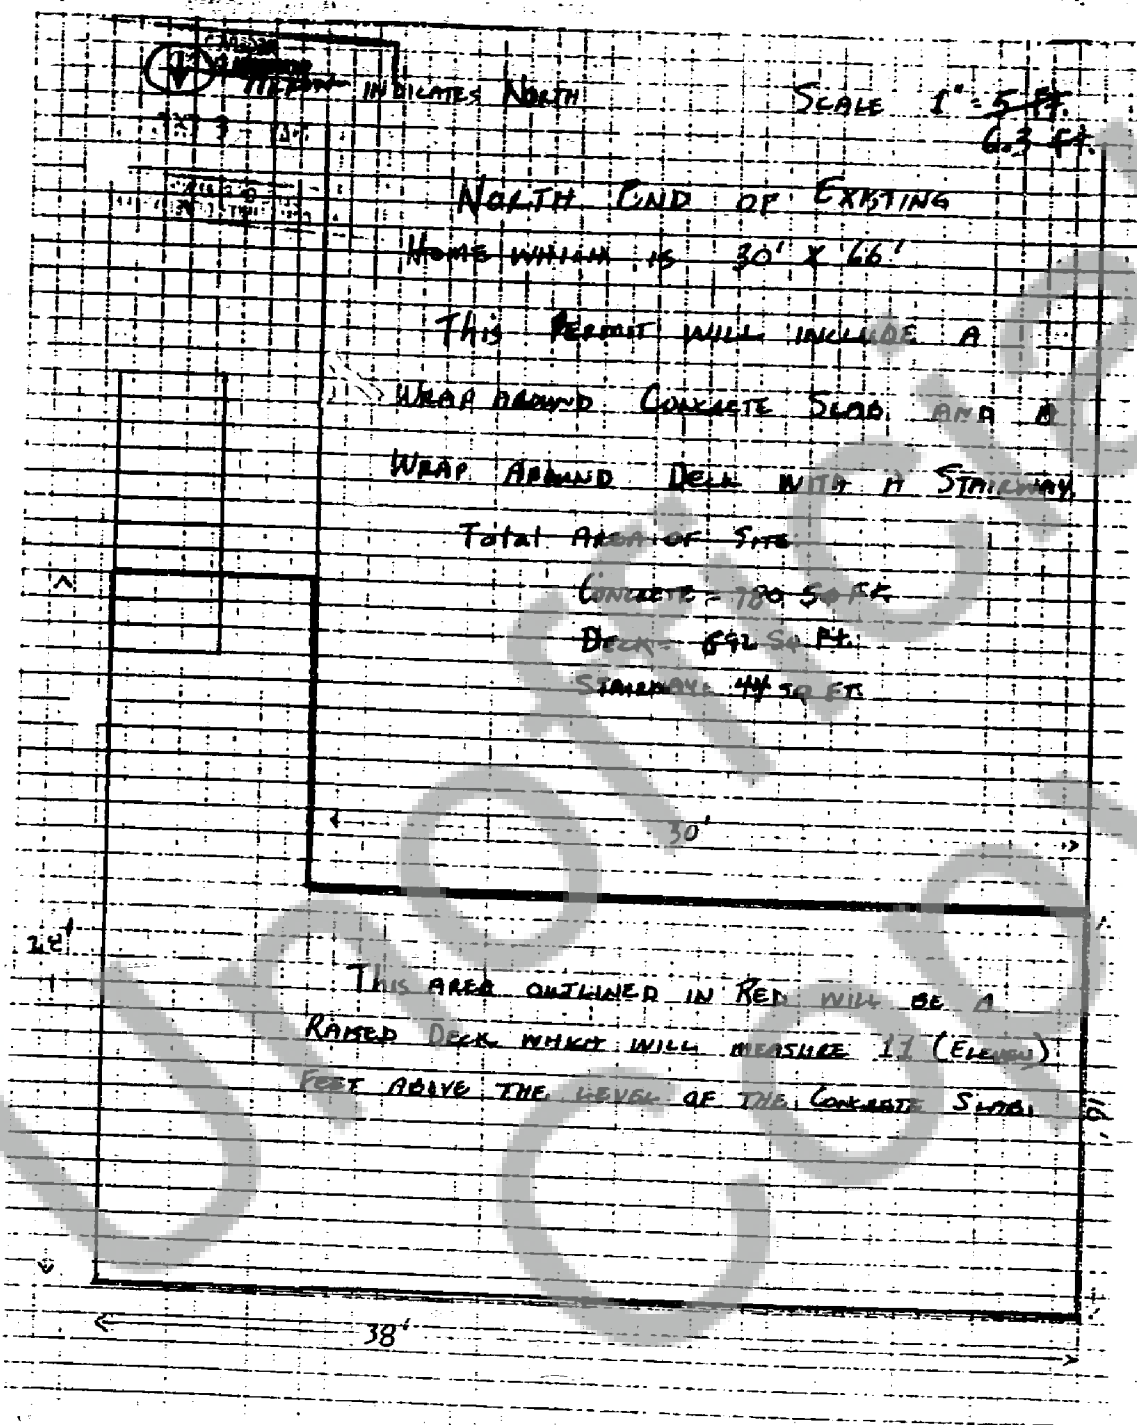 INDICATES NORTH
SCALE 1" = 5 ft.
6.3 ft.
NORTH END OF EXISTING
HOME WHICH IS 30' X 66'
This PERMIT WILL INCLUDE A
WRAP AROUND CONCRETE SLAB AND A
WRAP AROUND DECK WITH A STAIRWAY
Total AREA OF SITE
CONCRETE = 780 SQ Ft.
DECK = 692 SQ Ft.
STAIRWAY = 44 SQ FT.
30'
THIS AREA OUTLINED IN RED WILL BE A
RAISED DECK WHICH WILL MEASURE 11 (ELEVEN)
FEET ABOVE THE LEVEL OF THE CONCRETE SLAB.
16'
38'
Unofficial
Copy